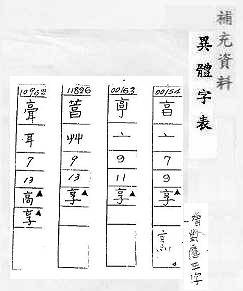 補充資料
異體字表
00154
亯
亠
7
9
享▲
烹
00163
亭
亠
9
11
享▲
11896
艸
9
13
享▲
10962
耳
7
13
高▲
享▲
增對應正字